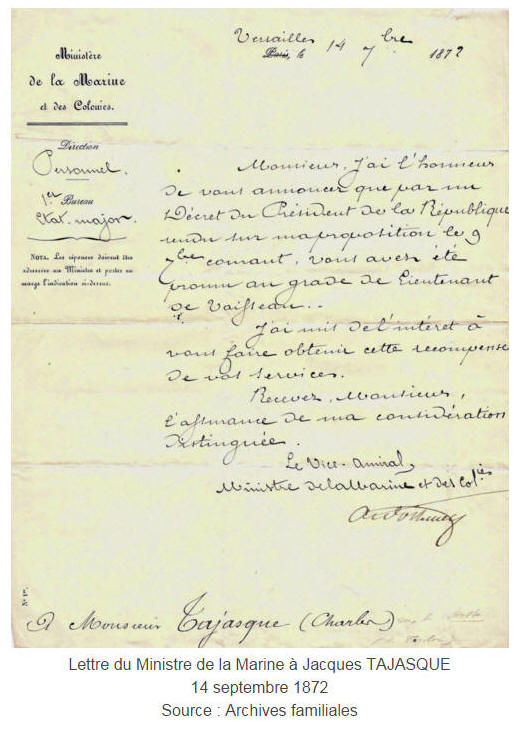 Versailles
Paris, le 14 7bre 1872
Ministère
de la Marine
et des Colonies.
Direction
Personnel.
1er Bureau
Etat-major.
NOTA. Les réponses doivent être
adressées au Ministre et porter en
marge l'indication ci-dessus.
Monsieur, J'ai l'honneur
de vous annoncer que par un
Décret du Président de la République
rendu sur ma proposition le 9
7bre courant, vous avez été
promu au grade de Lieutenant
de Vaisseau..
J'ai mis de l'intéret à
vous faire obtenir cette recompense
de vos services.
Recevez, Monsieur,
l'assurance de ma considération
distinguée.
Le Vice-Amiral,
Ministre de la Marine et des Colies
N° 1er.
A Monsieur Tajasque (Charles)
Lettre du Ministre de la Marine à Jacques TAJASQUE
14 septembre 1872
Source : Archives familiales